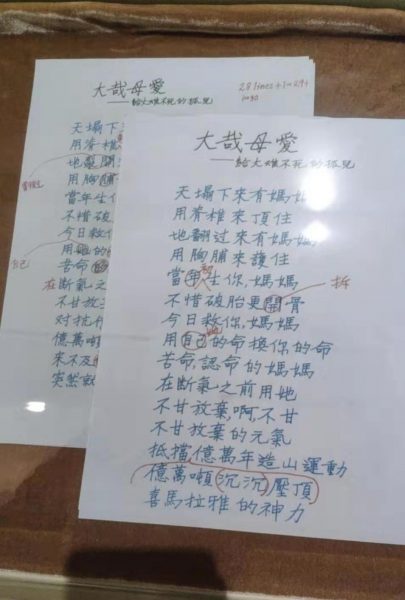 大哉母愛
——給大難不死的孤兒
28 lines
天塌下
用脊椎
地
用胸脯
當年生
不惜破
今日救
自己
用她的
苦命
在斷氣之
不甘放
對抗
億萬噸
來不及
突然
大哉母愛
——給大難不死的孤兒
天塌下來有媽媽
用脊椎來頂住
地翻过來有媽媽
用胸脯來護住
當年生你,媽媽
拆
不惜破胎更開骨
今日救你,媽媽
她
用自己的命換你的命
苦命,認命的媽媽
在斷氣之前用她
不甘放棄,啊,不甘
不甘放棄的元氣
抵擋億萬年造山運動
億萬噸沉沉壓頂
喜馬拉雅的神力